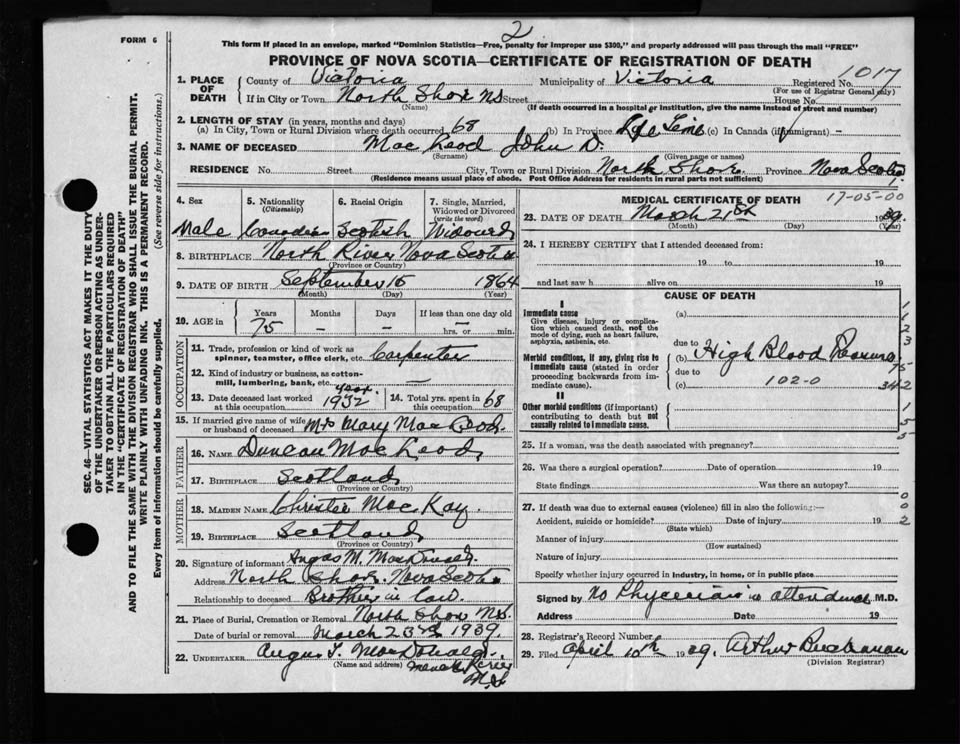 2
FORM 6
This form if placed in an envelope, marked "Dominion Statistics—Free, penalty for improper use $300," and properly addressed will pass through the mail "FREE"
PROVINCE OF NOVA SCOTIA—CERTIFICATE OF REGISTRATION OF DEATH
1. PLACE OF DEATH County of Victoria Municipality of Victoria Registered No. 1017
(For use of Registrar General only)
If in City or Town North Shore NS Street House No.
(Name) (If death occurred in a hospital or institution, give the name instead of street and number)
2. LENGTH OF STAY (in years, months and days)
(a) In City, Town or Rural Division where death occurred 68 (b) In Province Life Time (c) In Canada (if immigrant) –
3. NAME OF DECEASED Mac Leod John D.
(Surname) (Given name or names)
RESIDENCE No. Street City, Town or Rural Division North Shore Province Nova Scotia
(Residence means usual place of abode. Post Office Address for residents in rural parts not sufficient)
4. Sex 5. Nationality (Citizenship) 6. Racial Origin 7. Single, Married, Widowed or Divorced (write the word)
Male Canadian Scotish Widowed
8. BIRTHPLACE North River Nova Scotia
(Province or Country)
9. DATE OF BIRTH September 15 1864
(Month) (Day) (Year)
10. AGE in Years Months Days If less than one day
75 – – hrs. or min.
OCCUPATION
11. Trade, profession or kind of work as spinner, teamster, office clerk, etc. Carpenter
12. Kind of industry or business, as cotton-mill, lumbering, bank, etc. —
13. Date deceased last worked at this occupation 1932 14. Total yrs. spent in this occupation 68
15. If married give name of wife or husband of deceased Mrs Mary Mac Leod.
FATHER
16. NAME Duncan Mac Leod
17. BIRTHPLACE Scotland
(Province or Country)
MOTHER
18. MAIDEN NAME Christie Mac Kay
19. BIRTHPLACE Scotland
(Province or Country)
20. Signature of informant Angas M.
Address North Shore Nova Scotia
Relationship to deceased Brother in law
21. Place of Burial, Cremation or Removal North Shore N.S.
Date of burial or removal March 23rd 1939.
22. UNDERTAKER Angus J. MacDonald
(Name and address) River
N.S
MEDICAL CERTIFICATE OF DEATH 17-05-00
23. DATE OF DEATH March 21st 1939.
(Month) (Day) (Year)
24. I HEREBY CERTIFY that I attended deceased from:
19 to 19
and last saw h alive on 19
CAUSE OF DEATH
I
Immediate cause (a)
Give disease, injury or complication which caused death, not the mode of dying, such as heart failure, asphyxia, asthenia, etc.
due to
Morbid conditions, if any, giving rise to immediate cause (stated in order proceeding backwards from immediate cause).
(b) High Blood Pressure
due to
(c) 102-0
II
Other morbid conditions (if important) contributing to death but not causally related to immediate cause.
25. If a woman, was the death associated with pregnancy?
26. Was there a surgical operation? Date of operation 19
State findings Was there an autopsy?
27. If death was due to external causes (violence) fill in also the following:—
Accident, suicide or homicide? Date of injury 19
(State which)
Manner of injury
(How sustained)
Nature of injury
Specify whether injury occurred in industry, in home, or in public place
Signed by no Physician in attendance M.D.
Address Date 19
28. Registrar's Record Number
29. Filed April 10th 1939. Arthur Buchanan
(Division Registrar)
SEC. 46—VITAL STATISTICS ACT MAKES IT THE DUTY
OF THE UNDERTAKER OR PERSON ACTING AS UNDER-
TAKER TO OBTAIN ALL THE PARTICULARS REQUIRED
IN THE "CERTIFICATE OF REGISTRATION OF DEATH"
AND TO FILE THE SAME WITH THE DIVISION REGISTRAR WHO SHALL ISSUE THE BURIAL PERMIT.
WRITE PLAINLY WITH UNFADING INK. THIS IS A PERMANENT RECORD.
Every item of information should be carefully supplied. (See reverse side for instructions.)